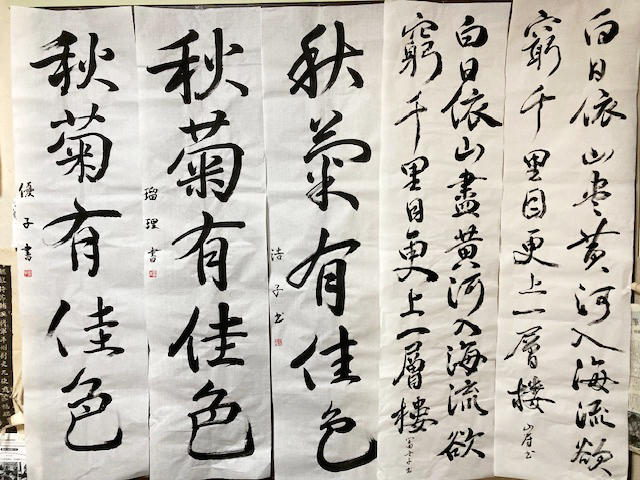 白日依山尽黄河入海流欲
窮千里目更上一層楼
白日依山盡黄河入海流欲
窮千里目更上一層樓
秋菊有佳色
秋菊有佳色
瑠理書
秋菊有佳色
優子書